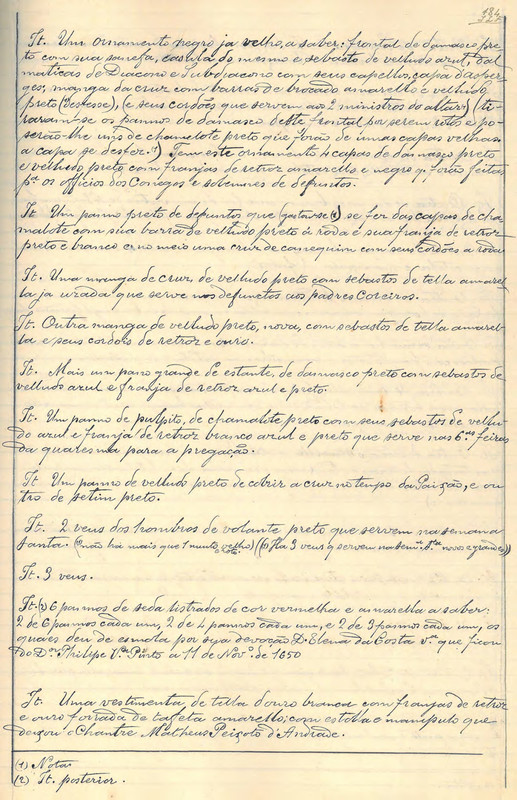 184
It. Um ornamento negro ja velho, a saber: frontal de damasco pre-
to com sua sanefa, casula do mesmo e sebasto de velludo azul, dal
maticas de Diacono e Subdiacono com seus capellos, capa d'asper-
ges, manga da cruz com barras de brocado amarello e velludo
preto (desfesse), (e seus cordões que servem aos 2 ministros do altar) (ti-
raram-se os panno de damasco deste frontal por serem rotos e po-
serão-lhe uns de chamelote preto que forão de umas capas velhas
a capa se desfez. 1) Tem este ornamento 4 capas de damasco preto
e velludo preto com franjas de retroz amarello e negro q. forão feitas
pa. os officios dos Conegos e solemnes de defuntos.
It. Um panno preto de defuntos que (gastou-se (1)) se fez das capas de cha-
malote com sua barra de velludo preto á roda e sua franja de retroz
preto e branco e no meio uma cruz de canequim com seus cordões a roda
It. Uma manga de cruz, de velludo preto com sebastos de tella amarel
la ja uzada que serve nos defunctos aos padres Coreiros.
It. Outra manga de velludo preto, nova, com sebastos de tella amarel-
la e seus cordões de retroz e ouro.
It. Mais um pano grande de estante, de damasco preto com sebastos de
velludo azul e franja de retroz azul e preto.
It. Um panno de pulpito, de chamalote preto com seus sebastos de vellu-
do azul e franja de retroz branco azul e preto que serve nas 6as feiras
da quaresma para a pregação.
It. Um panno de velludo preto de cobrir a cruz no tempo da Paixão, e ou
tro de setim preto.
It. 2 veus dos hombros de volante preto que servem na semana
santa. (não ha mais que 1 muito velho) (Ha 3 veus q servem na sem.a S.ta novos e grandes)
It. 3 veus.
It. (2) 6 pannos de seda listrados de cor vermelha e amarella a saber:
2 de 6 pannos cada um, 2 de 4 pannos cada um, e 2 de 3 pannos cada um, os
quaes deu de esmola por sua devoção D. Elena da Costa v.va que ficou
do D.or Philipe V.az Pinto a 11 de Nov.o de 1650
It. Uma vestimenta de tella d'ouro branca com franjas de retroz
e ouro forrada de tafeta amarello; com estolla e manipulo que
deixou o Chantre Matheus Peixoto d'Andrade.
(1) Nota
(2) It. posterior.